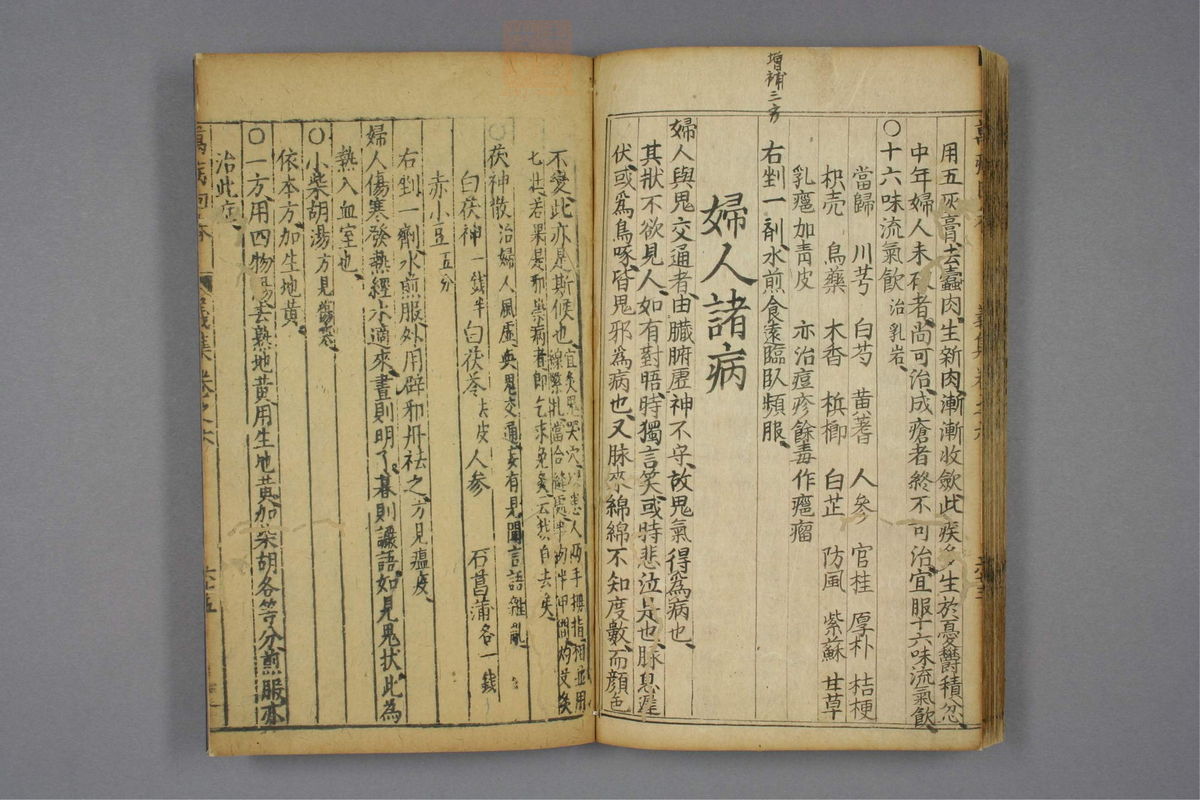 用五灰膏去蠹肉生新肉漸漸收歛此疾多生於憂鬱積忿
中年婦人未破者尚可治成瘡者終不可治宜服十六味流氣飲
〇十六味流氣飲 治乳岩
當歸 川芎 白芍 黃蓍 人參 官桂 厚朴 桔梗
枳壳 烏藥 木香 梹榔 白芷 防風 紫蘇 甘草
乳癰加青皮 亦治痘疹餘毒作癰瘤
右剉一剤水煎食遠臨臥頻服
增補三方
婦人諸病
婦人與鬼交通者由臟腑虛神不守故鬼氣得為病也
其狀不欲見人如有對晤時獨言笑或時悲泣是也脉息遲
伏或為鳥啄皆鬼邪為病也又脉來綿綿不知度數而顏色
不變此亦是斯候也宜灸鬼哭穴以患人兩手拇指相並用
線縶扎當合縫處半肉半甲間灼艾灸
七壯若果是邪祟病者即乞求免灸云我自去矣
〇茯神散 治婦人風虛與鬼交通妄有見聞言語雜亂
白茯神一錢半 白茯苓去皮 人參 石菖蒲各一錢
赤小豆五分
右剉一劑水煎服外用辟邪丹祛之方見瘟疫
婦人傷寒發熱經水適來晝則明了暮則譫語如見鬼狀此為
熱入血室也
〇小柴胡湯方見傷寒
依本方加生地黃
〇一方用四物湯去熟地黃用生地黃加柴胡各等分煎服亦
治此症